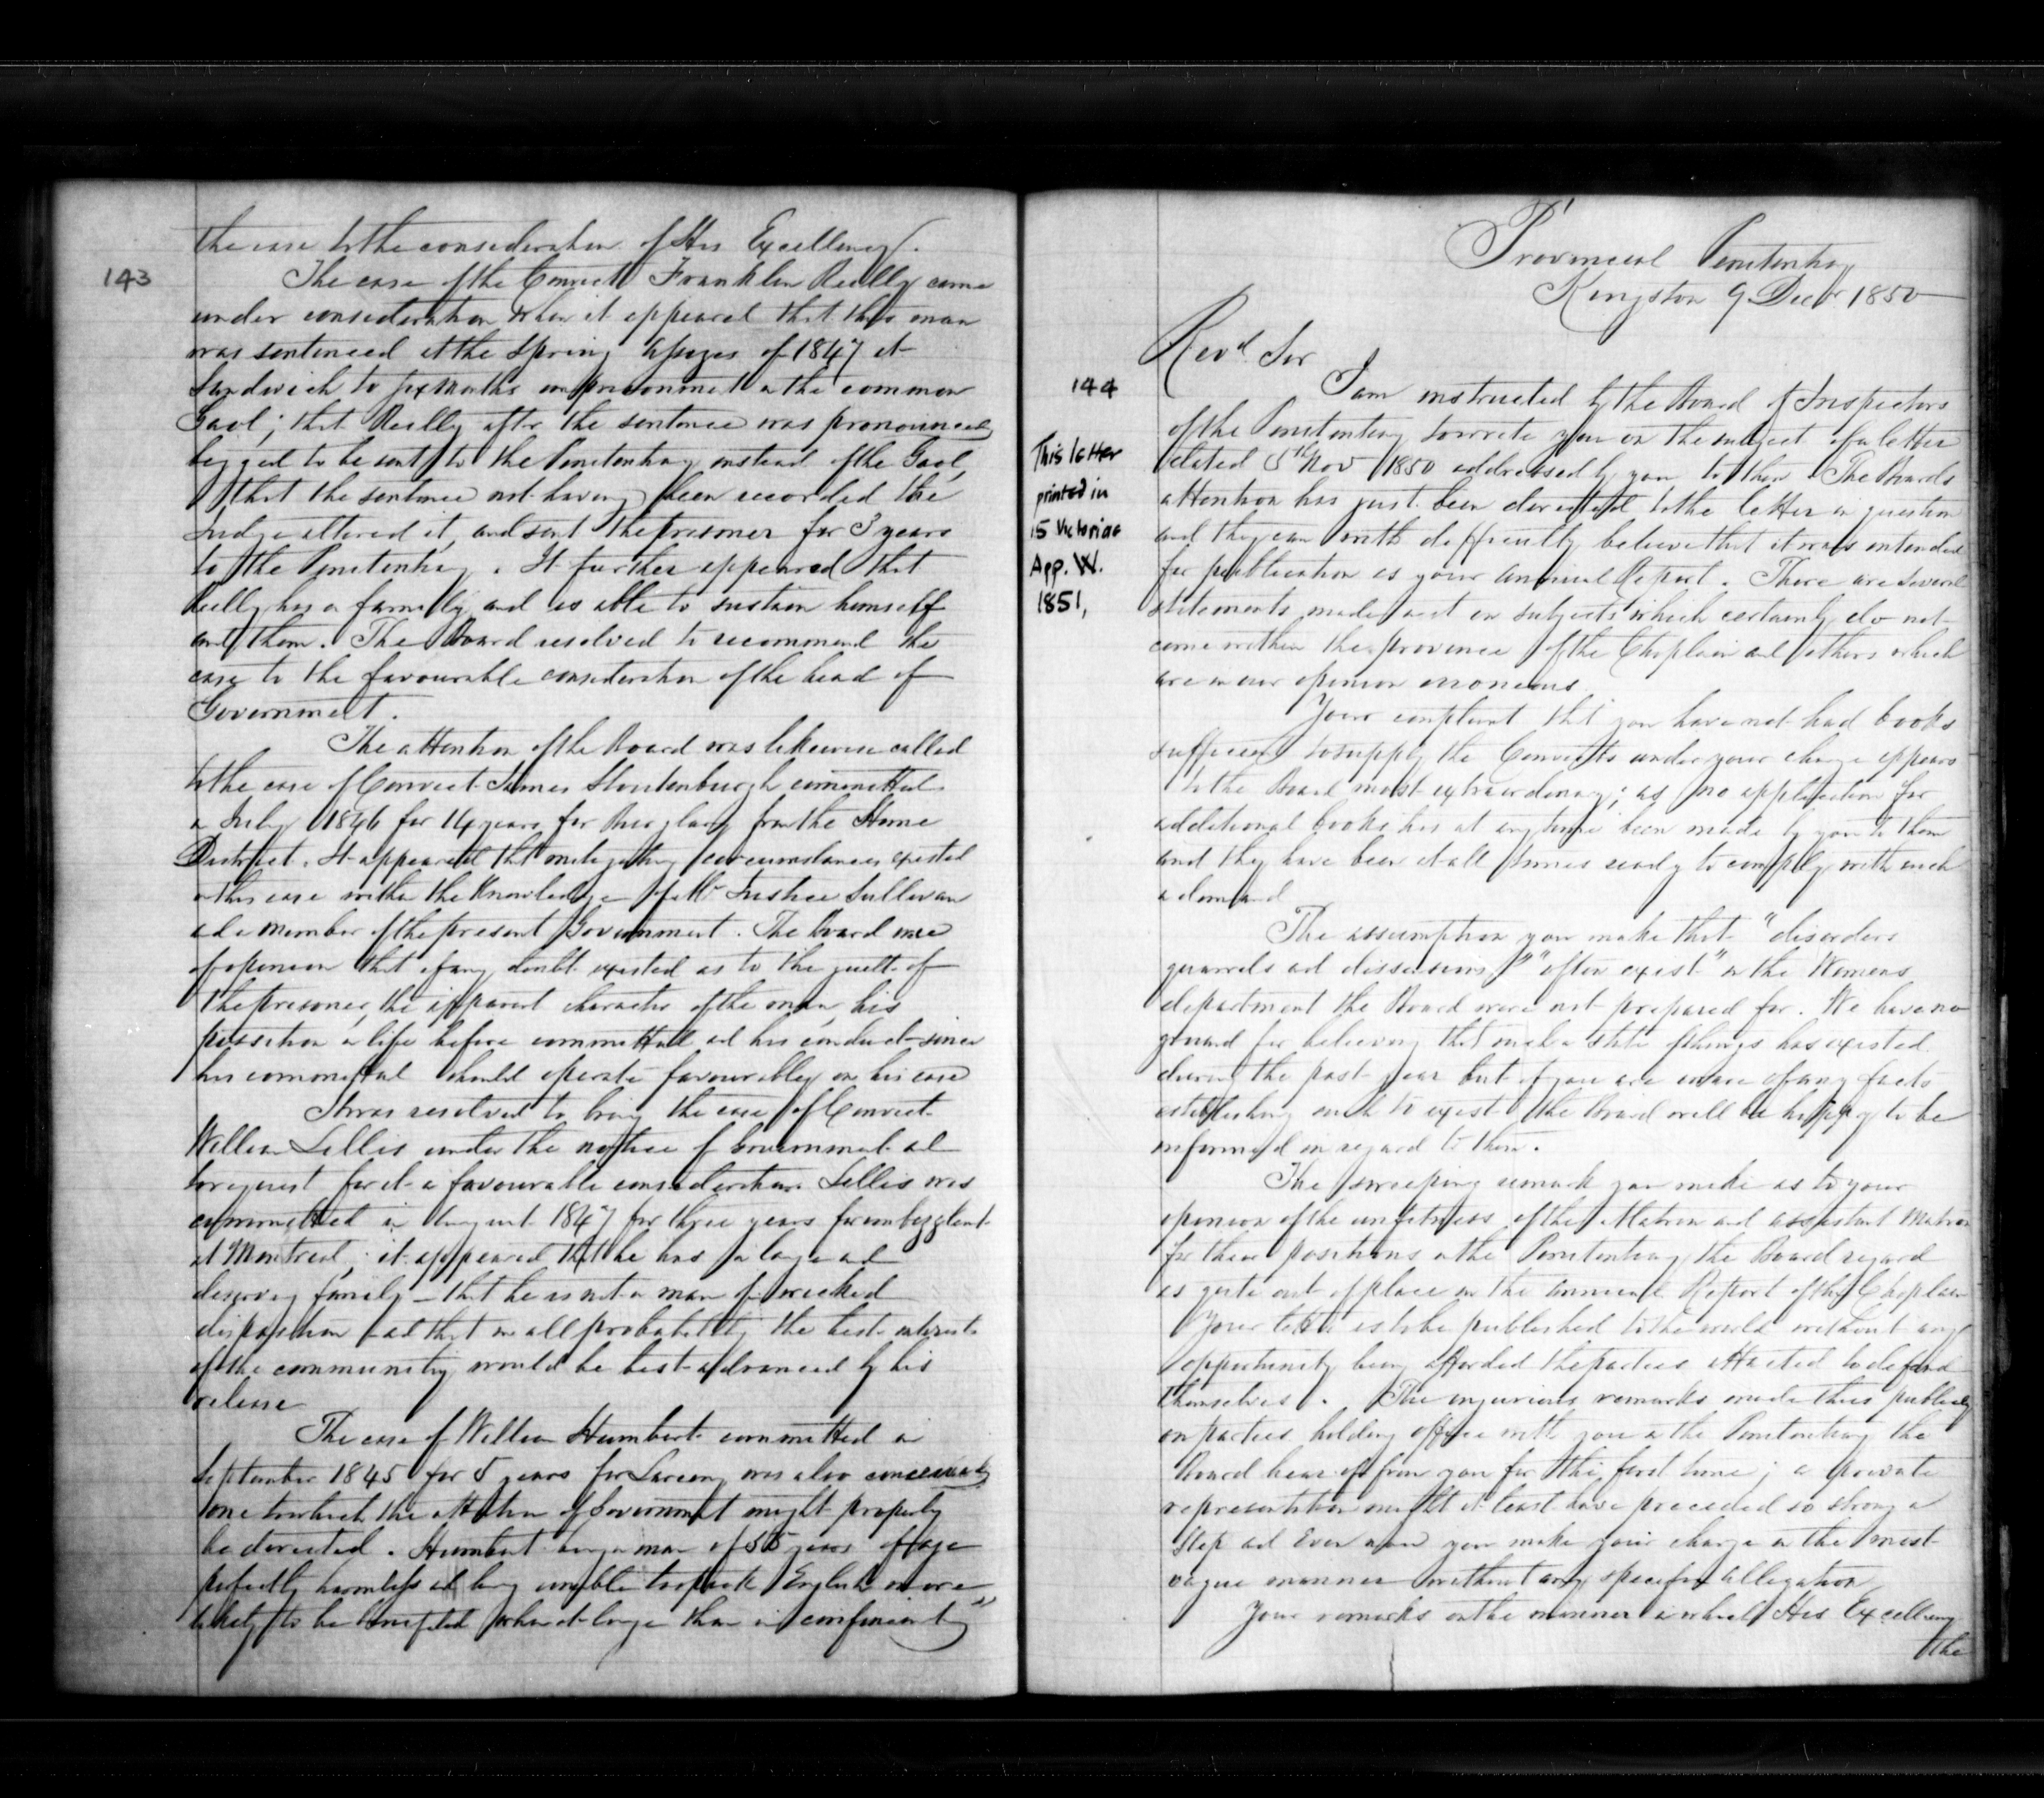 the case to the consideration of His Excellency.
143
The case of the Convict Franklin Reilly came
under consideration when it appeared that this man
was sentenced at the Spring Assizes of 1847 at
Sandwich to six months imprisonment in the common
Gaol; that Reilly after the sentence was pronounced
begged to be sent to the Penitentiary instead of the Gaol,
that the sentence not having been recorded the
Judge altered it, and sent the prisoner for 3 years
to the Penitentiary. It further appeared that
Reilly has a family and is able to sustain himself
and them. The Board resolved to recommend the
case to the favourable consideration of the head of
Government.
The attention of the Board was likewise called
to the case of Convict James Stoutenburgh committed
in July 1846 for 14 years for Burglary from the Home
District. It appeared that mitigating circumstances existed
in this case within the knowledge of Mr Justice Sullivan
and a member of the present Government. The Board were
of opinion that if any doubt existed as to the guilt of
the prisoner, the apparent character of the man, his
position in life before committal and his conduct since
his committal should operate favourably in his case
It was resolved to bring the case of Convict
William Lellis under the notice of Government and
to request for it a favourable consideration. Lellis was
committed in August 1847 for three years for embezzlemt
at Montreal; it appeared that he has a large and
deserving family – that he is not a man of wicked
disposition and that in all probability the best interests
of the community would be best advanced by his
release
The case of William Humbert committed in
September 1845 for 5 years for Larceny was also conceived
one to which the attention of Government might properly
be directed. Humbert being a man of 55 years of age
perfectly harmless and being unable to speak English more
likely to be benefited when at large than in confinement
Provincial Penitentiary
Kingston 9 Decbr 1850
Revd Sir
144
This letter
printed in
15 Victoriae
App. W.
1851,
I am instructed by the Board of Inspectors
of the Penitentiary to write you on the subject of a letter
dated 5th Nov 1850 addressed by you to them. The Boards
attention has just been directed to the letter in question
and they can with difficulty believe that it was intended
for publication as your annual Report. There are several
statements made in it on subjects which certainly do not
come within the province of the Chaplain and others which
are in our opinion erroneous.
Your complaint that you have not had books
sufficient to supply the Convicts under your charge appears
to the Board most extraordinary; as no application for
additional books has at any time been made by you to them
and they have been at all times ready to comply with such
a demand
The assumption you make that "disorders
quarrels and dissensions" "often exist" in the Womens
department the Board were not prepared for. We have no
ground for believing that such a state of things has existed
during the past year but if you are aware of any facts
establishing such to exist the Board will be happy to be
informed in regard to them.
The sweeping remark you make as to your
opinion of the unfitness of the Matron and assistant Matron
for their positions in the Penitentiary, the Board regard
as quite out of place in the annual Report of the Chaplain
Your letter is to be published to the world without any
opportunity being afforded the parties attacked to defend
themselves. The injurious remarks made thus publicly
on parties holding office with you in the Penitentiary the
Board hear of from you for the first time; a private
representation might at least have preceded so strong a
step and even now you make your charge in the most
vague manner without any specific allegation
Your remarks on the manner in which His Excellency
the